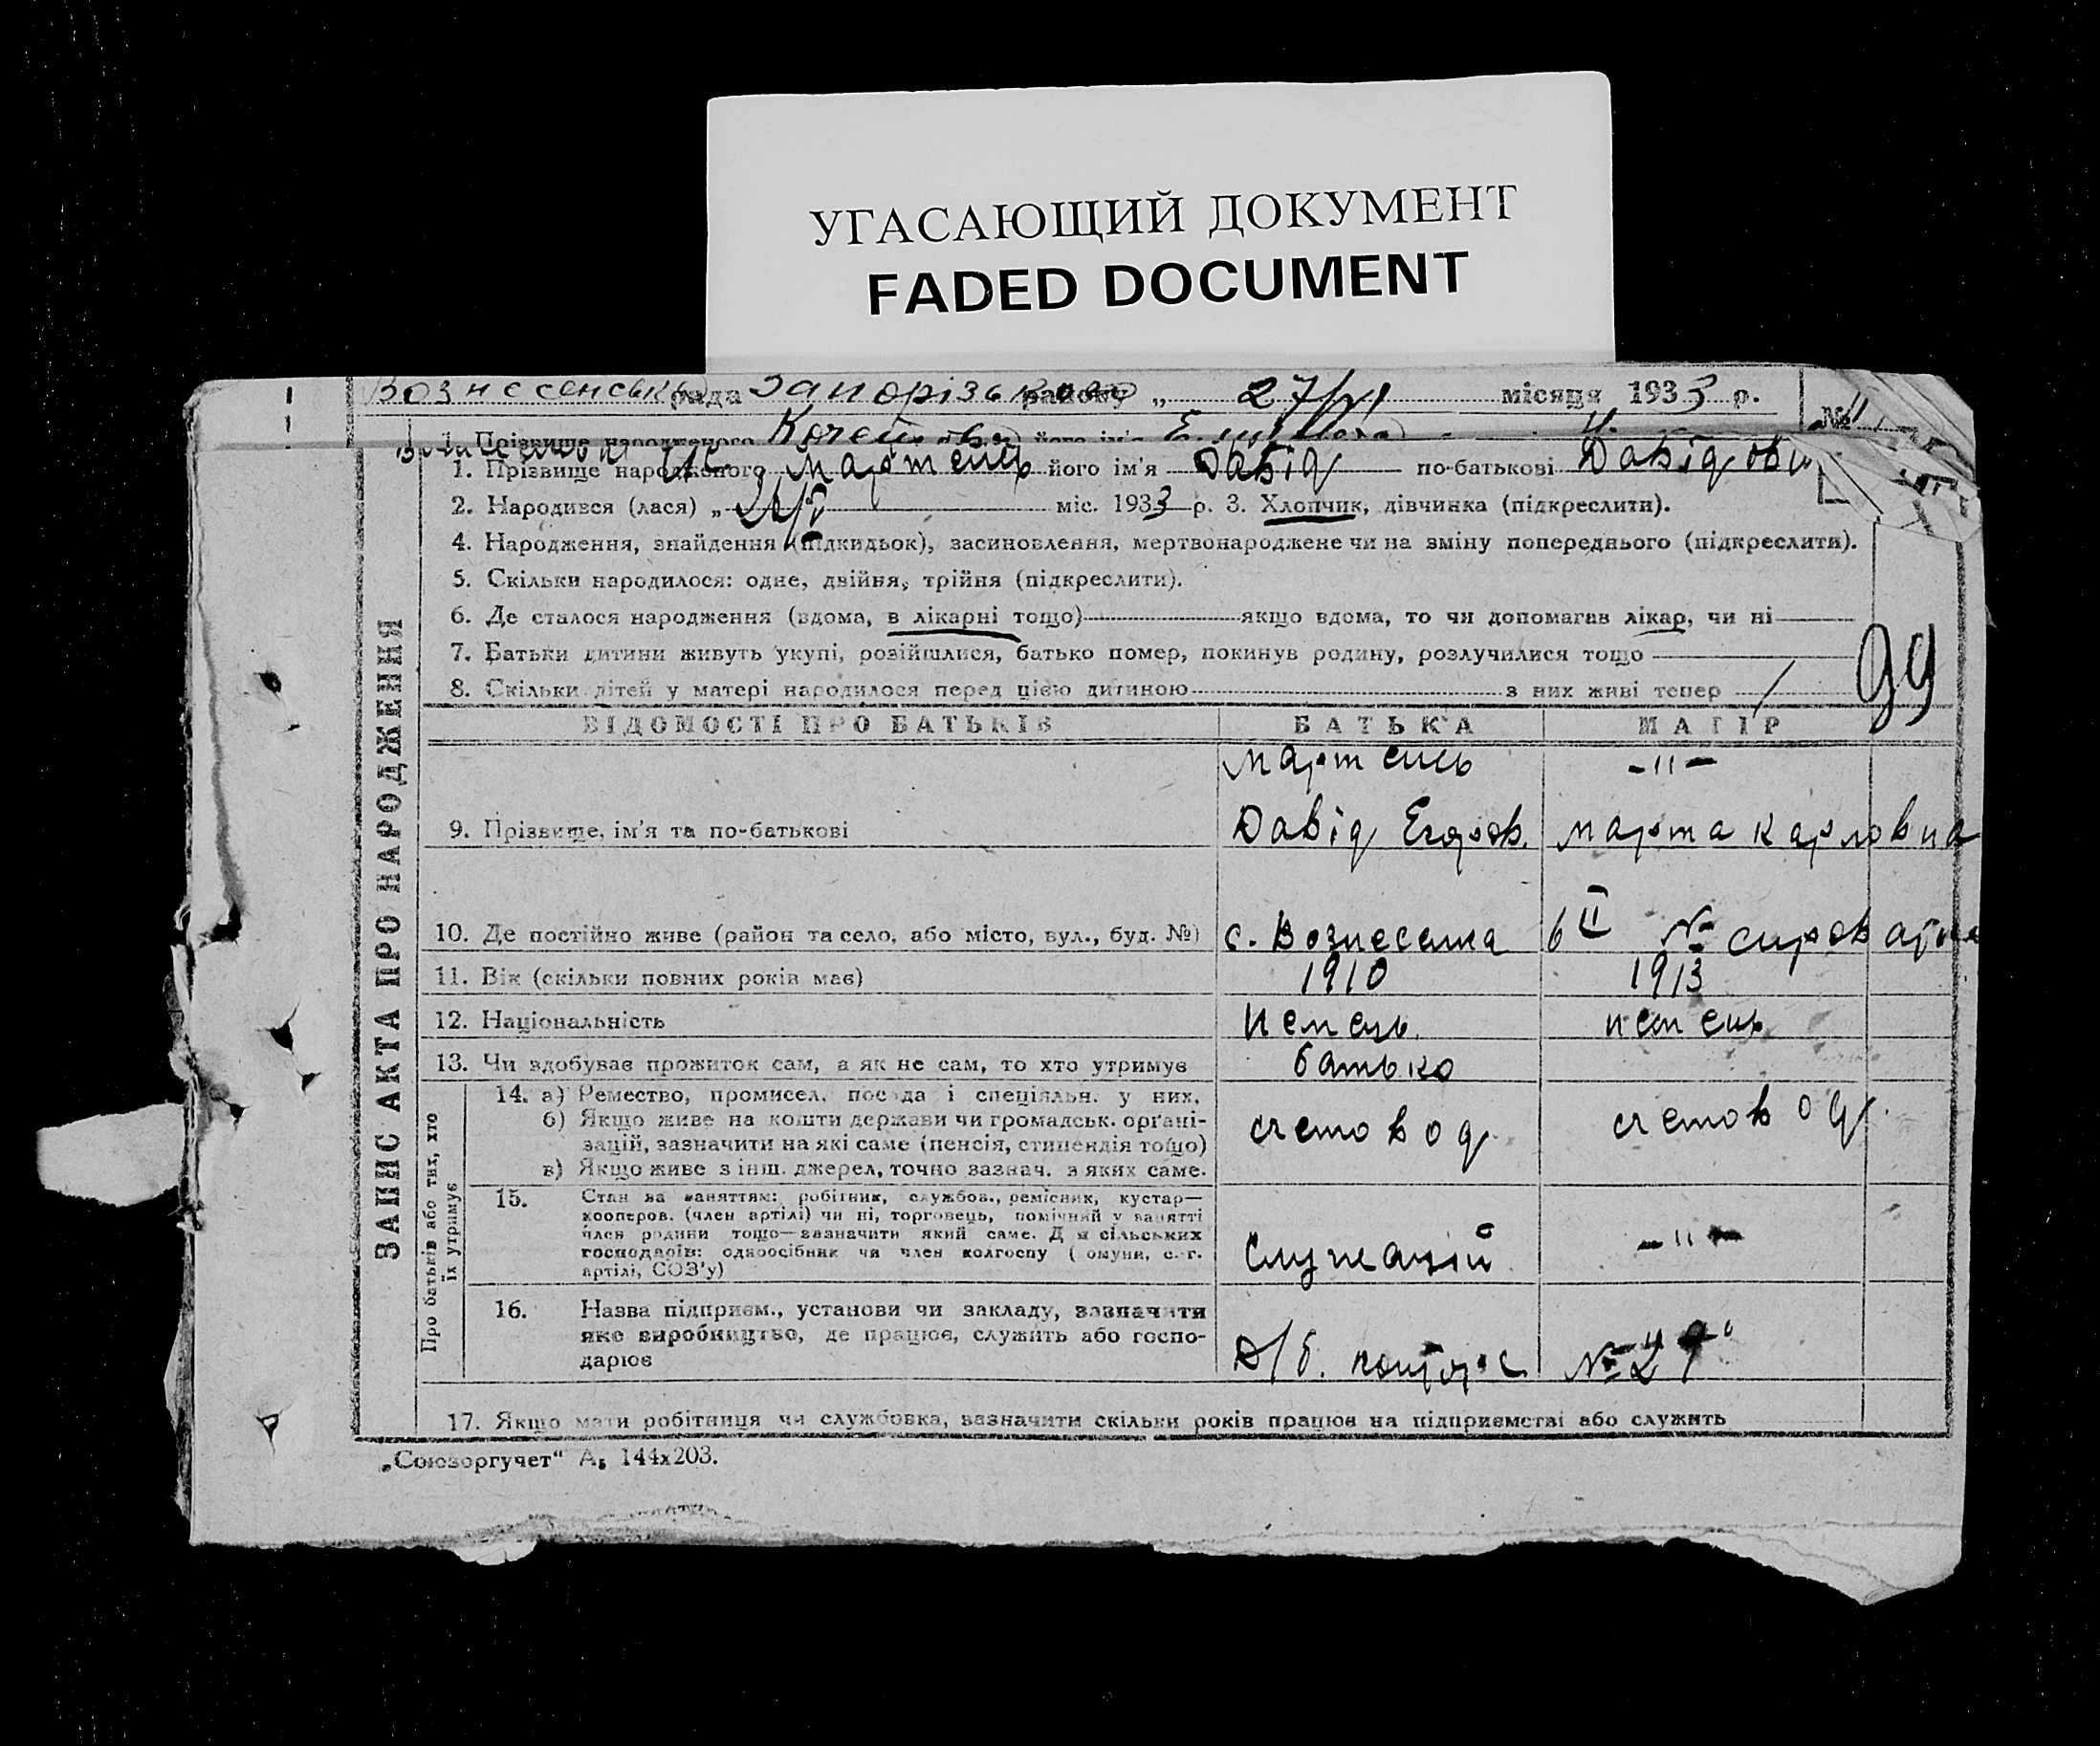 УГАСАЮЩИЙ ДОКУМЕНТ
FADED DOCUMENT
рада району „ 27/VI місяця 1933 р.
№
1. Прізвище народженого його ім'я
1. Прізвище народженого Мартенсь його ім'я Давід по-батькові Давідови
2. Народився (лася) „ міс. 1933 р. 3. Хлопчик, дівчинка (підкреслити).
4. Народження, знайдення (підкидьок), засиновлення, мертвонароджене чи на зміну попереднього (підкреслити).
5. Скільки народилося: одне, двійня, трійня (підкреслити).
6. Де сталося народження (вдома, в лікарні тощо) якщо вдома, то чи допомагав лікар, чи ні
7. Батьки дитини живуть укупі, розійшлися, батько помер, покинув родину, розлучилися тощо
8. Скільки дітей у матері народилося перед цією дитиною з них живі тепер /
99
ЗАПИС АКТА ПРО НАРОДЖЕННЯ
ВІДОМОСТІ ПРО БАТЬКІВ БАТЬКА МАТІР
Мартенсь -"-
9. Прізвище, ім'я та по-батькові Давід Егоров. Марта Карловна
10. Де постійно живе (район та село, або місто, вул., буд. №) с. Вознесенка 6 II №
11. Вік (скільки повних років має) 1910 1913
12. Національність немець немець
13. Чи здобуває прожиток сам, а як не сам, то хто утримує батько
Про батьків або тих, хто їх утримує
14. а) Ремество, промисел, посада і спеціяльн. у них.
б) Якщо живе на кошти держави чи громадськ. орґані-
зацій, зазначити на які саме (пенсія, стипендія тощо)
в) Якщо живе з інш. джерел, точно зазнач. з яких саме.
счетовод счетовод
15. Стан за заняттям: робітник, службов., ремісник, кустар—
кооперов. (член артілі) чи ні, торговець, помічний у занятті
член родини тощо—зазначити який саме. Для сільських
господарів: одноосібник чи член колгоспу (комуни, с.-г.
артілі, СОЗ'у)
служащій -"-
16. Назва підприєм., установи чи закладу, зазначити
яке виробництво, де працює, служить або госпо-
дарює
№
17. Якщо мати робітниця чи службовка, зазначити скільки років працює на підприємстві або служить
„Союзоргучет“ А5 144х203.